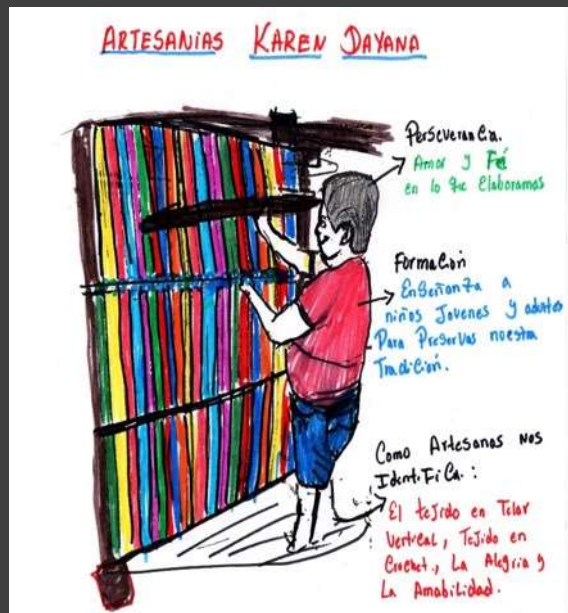 ARTESANIAS KAREN DAYANA
Perseverancia.
Amor y Fé
en lo que Elaboramos
Formación
Enseñanza a
niños Jovenes y adultos
Para Preservar nuestra
Tradición.
Como Artesanos nos
Identifica.:
El tejido en Telar
Vertical, Tejido en
Crochet., La Alegria y
La Amabilidad.